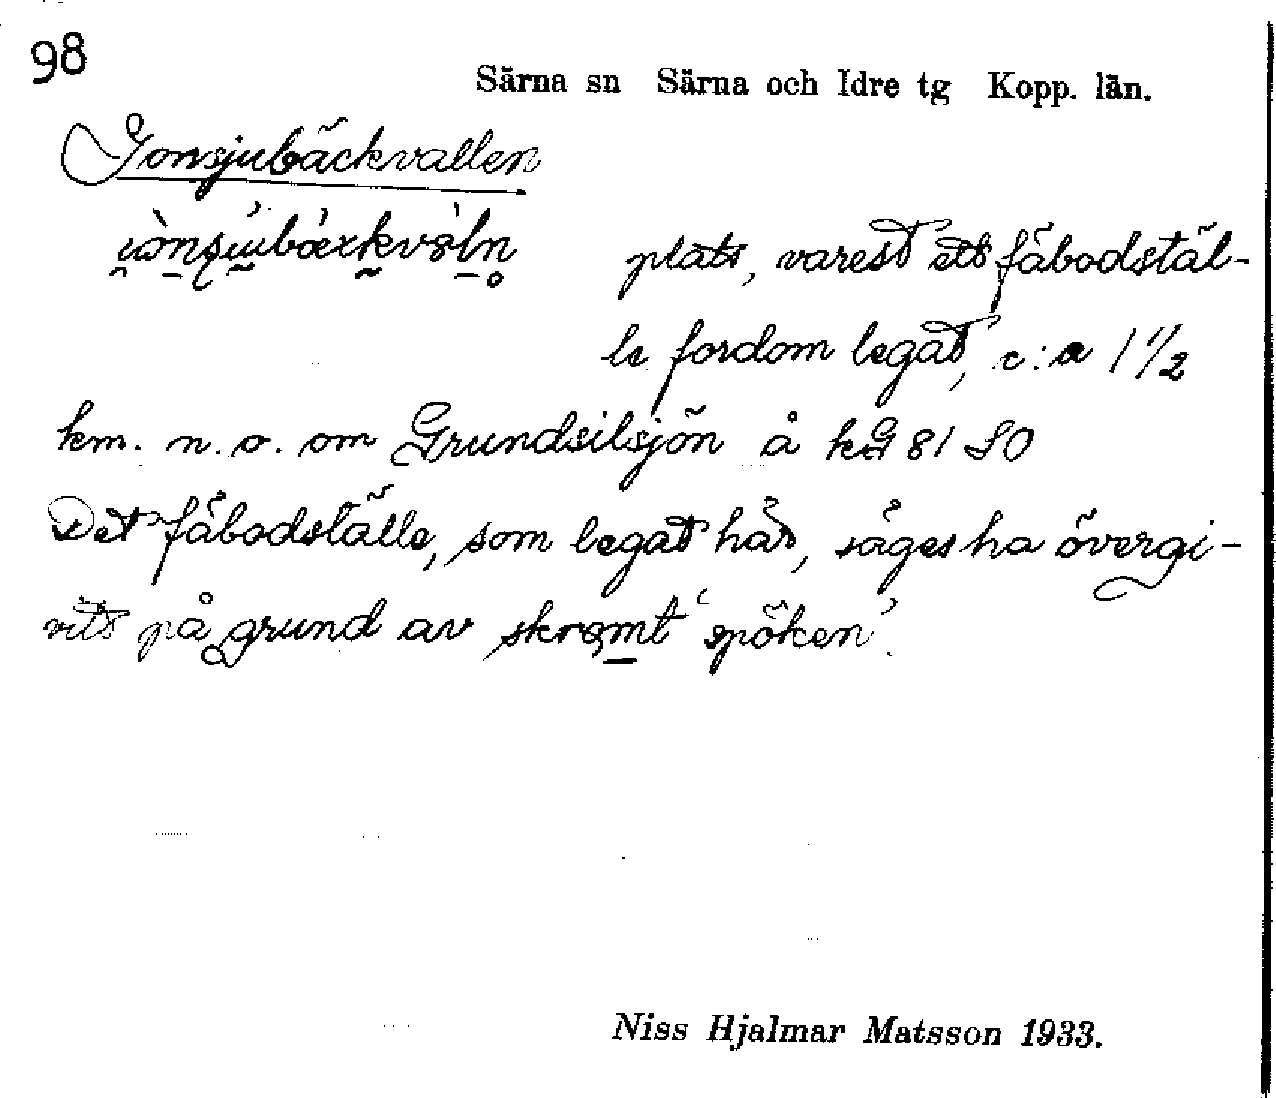 98
Särna sn Särna och Idre tg Kopp. län.
Jonsjubäckvallen
plats, varest ett fäbodstäl-
le fordom legat, c:a 1 1/2
km. n.o. om Grundsilsjön å kG 81 SO
Det fäbodställe, som legat här, säges ha övergi-
vits på grund av skrömt 'spöken'.
Niss Hjalmar Matsson 1933.